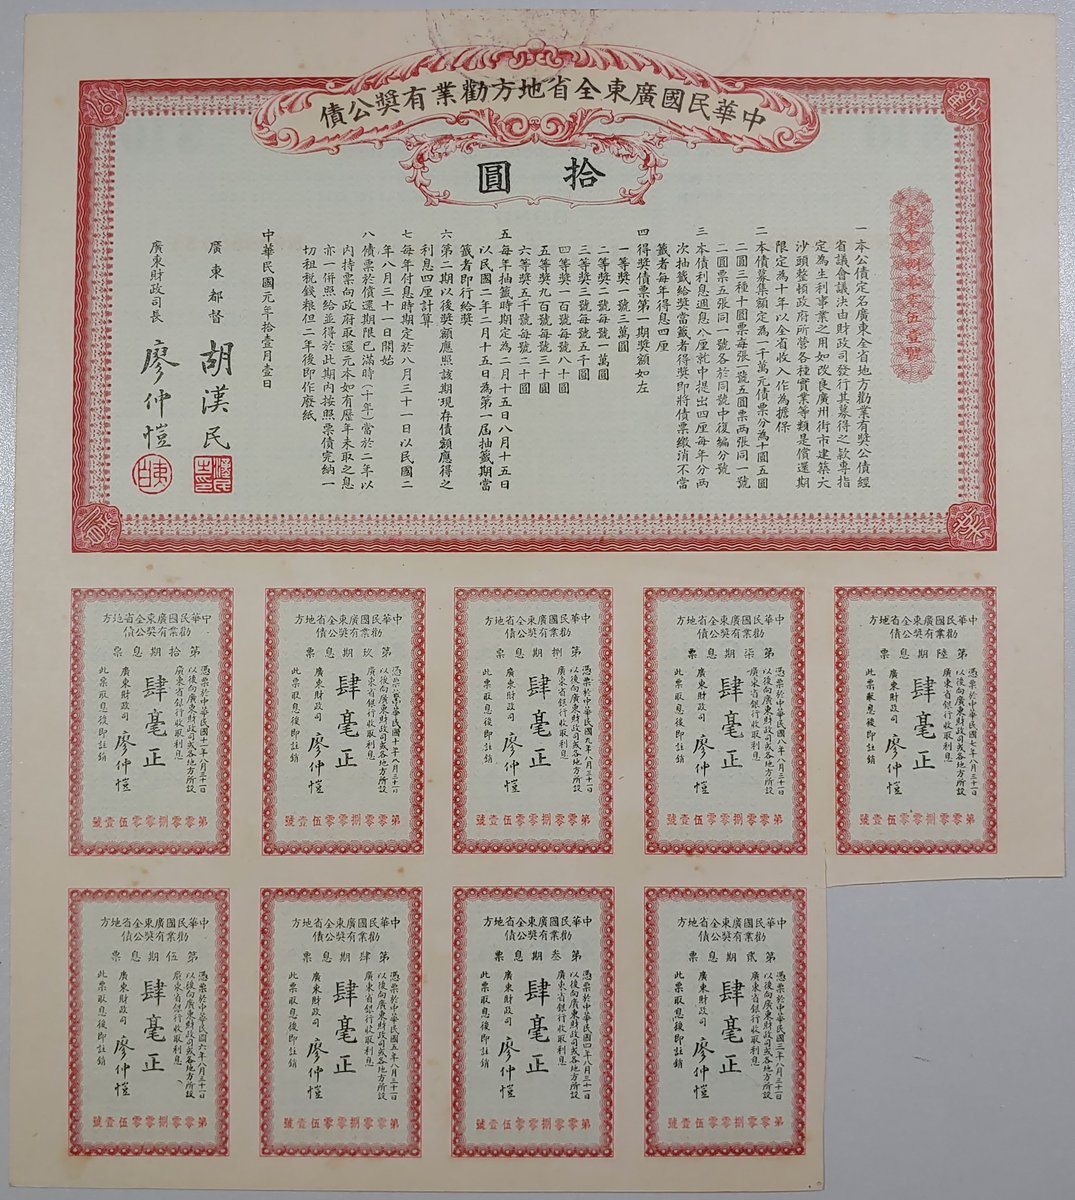 中華民國廣東全省地方勸業有獎公債
拾圓
一本公債定名廣東全省地方勸業有獎公債經
省議會議決由財政司發行其募得之款專指
定為生利事業之用如改良廣州街市建築大
沙頭整頓政府所營各種實業等類是償還期
限定為十年以全省收入作為擔保
二本債募集額定為一千萬元債票分為十圓五圓
二圓三種十圓票每張一號五圓票兩張同一號
二圓票五張同一號各於同號中復編分號
三本債利息週息八厘就中提出四厘每年分兩
次抽籤給獎當籤者得獎即將債票繳消不當
籤者每年得息四厘
四得獎債票第一期獎額如左
一等獎一號三萬圓
二等獎二號每號一萬圓
三等獎三號每號五千圓
四等獎一百號每號八十圓
五等獎九百號每號三十圓
六等獎五千號每號二十圓
五每年抽籤時期定為二月十五日八月十五日
以民國二年二月十五日為第一屆抽籤期當
籤者即行給獎
六第二期以後獎額應照該期現存債額應得之
利息四厘計算
七每年付息時期定於八月三十一日以民國二
年八月三十一日開始
八債票於償還期限已滿時(十年)當於二年以
內持票向政府取還元本如有歷年未取之息
亦一併照給並得於此期內按照票債完納一
切租稅錢粮但二年後即作廢紙
中華民國元年拾壹月壹日
廣東都督 胡漢民
廣東財政司長 廖仲愷
中華民國廣東全省地方
勸業有獎公債
第陸期息票
憑票於中華民國七年八月三十一日
以後向廣東財政司或各地方所設
廣東省銀行收取利息
肆毫正
廣東財政司 廖仲愷
此票取息後即註銷
第零零捌零零伍壹號
中華民國廣東全省地方
勸業有獎公債
第柒期息票
憑票於中華民國八年八月三十一日
以後向廣東財政司或各地方所設
廣東省銀行收取利息
肆毫正
廣東財政司 廖仲愷
此票取息後即註銷
第零零捌零零伍壹號
中華民國廣東全省地方
勸業有獎公債
第捌期息票
憑票於中華民國九年八月三十一日
以後向廣東財政司或各地方所設
廣東省銀行收取利息
肆毫正
廣東財政司 廖仲愷
此票取息後即註銷
第零零捌零零伍壹號
中華民國廣東全省地方
勸業有獎公債
第玖期息票
憑票於中華民國十年八月三十一日
以後向廣東財政司或各地方所設
廣東省銀行收取利息
肆毫正
廣東財政司 廖仲愷
此票取息後即註銷
第零零捌零零伍壹號
中華民國廣東全省地方
勸業有獎公債
第拾期息票
憑票於中華民國十一年八月三十一日
以後向廣東財政司或各地方所設
廣東省銀行收取利息
肆毫正
廣東財政司 廖仲愷
此票取息後即註銷
第零零捌零零伍壹號
中華民國廣東全省地方
勸業有獎公債
第貳期息票
憑票於中華民國三年八月三十一日
以後向廣東財政司或各地方所設
廣東省銀行收取利息
肆毫正
廣東財政司 廖仲愷
此票取息後即註銷
第零零捌零零伍壹號
中華民國廣東全省地方
勸業有獎公債
第叁期息票
憑票於中華民國四年八月三十一日
以後向廣東財政司或各地方所設
廣東省銀行收取利息
肆毫正
廣東財政司 廖仲愷
此票取息後即註銷
第零零捌零零伍壹號
中華民國廣東全省地方
勸業有獎公債
第肆期息票
憑票於中華民國五年八月三十一日
以後向廣東財政司或各地方所設
廣東省銀行收取利息
肆毫正
廣東財政司 廖仲愷
此票取息後即註銷
第零零捌零零伍壹號
中華民國廣東全省地方
勸業有獎公債
第伍期息票
憑票於中華民國六年八月三十一日
以後向廣東財政司或各地方所設
廣東省銀行收取利息
肆毫正
廣東財政司 廖仲愷
此票取息後即註銷
第零零捌零零伍壹號